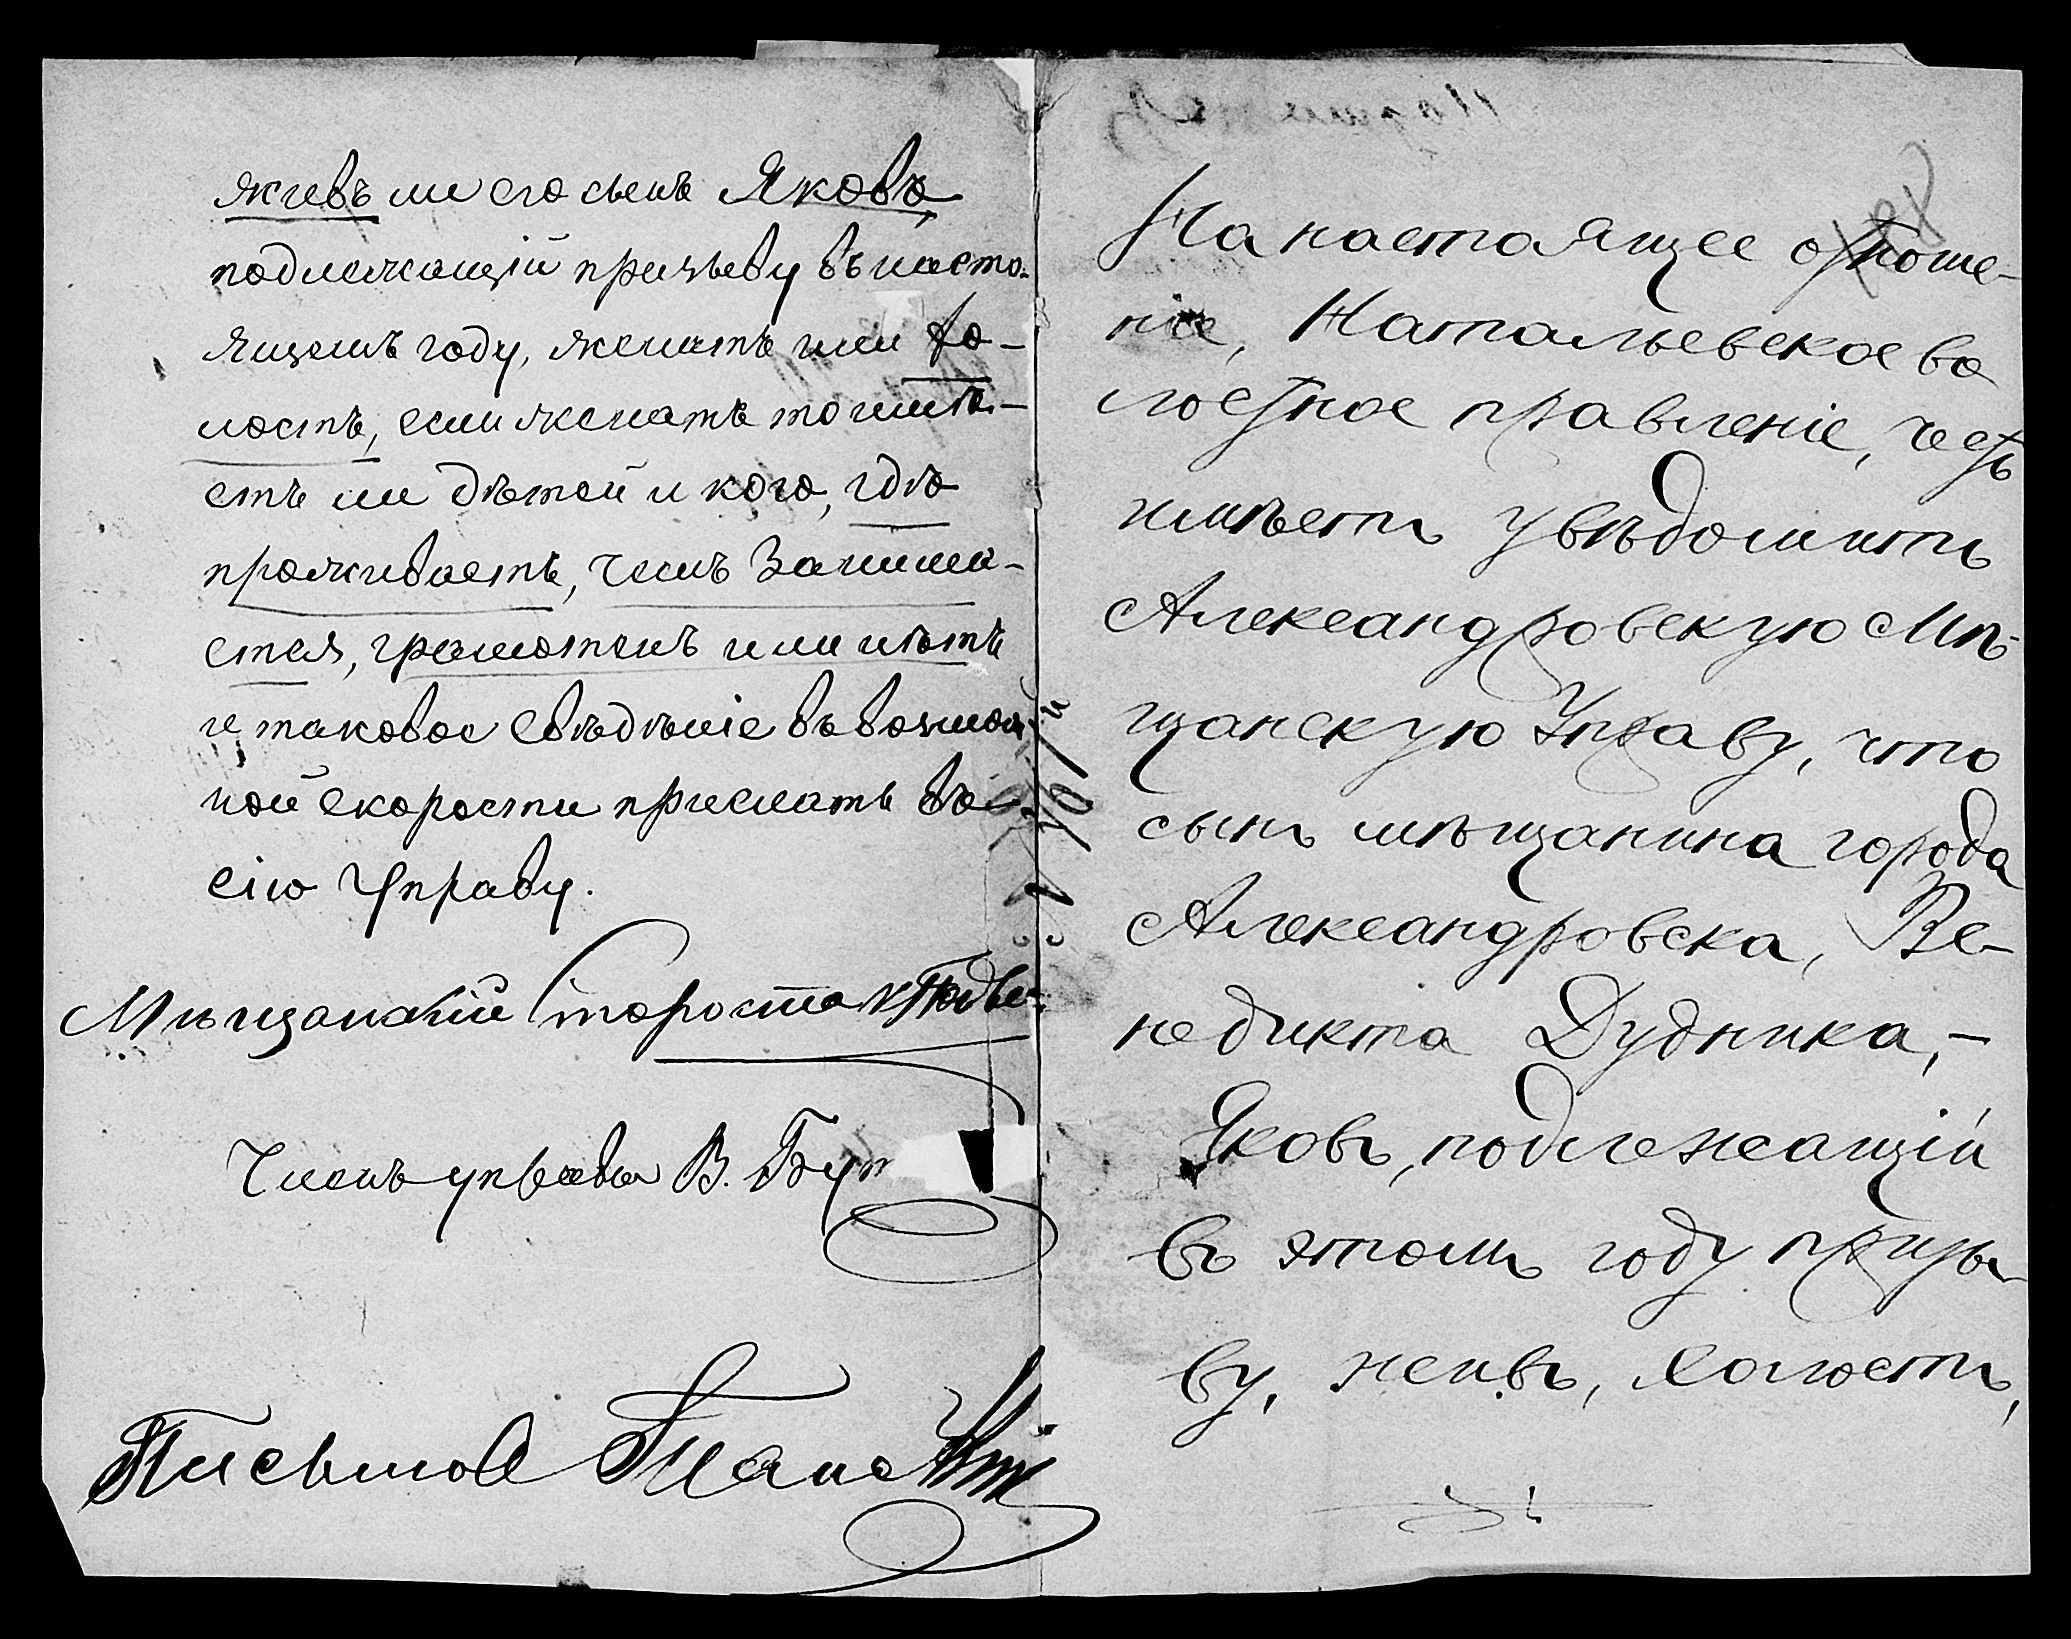 живъ ли его сынъ Яковъ,
подлежащій призыву въ насто-
ящемъ году, женатъ или хо-
лостъ, если женатъ то имѣ-
етъ ли дѣтей и кого, гдѣ
проживаетъ, чѣмъ занима-
ется, грамотенъ или нѣтъ
и таковое свѣдѣніе въ возмож
ной скорости прислать въ
сію Управу.
Мѣщанскій Староста
Членъ управы В. Бут
Письмов
На настоящее отноше-
ніе, Натальевское во
лостное правленіе, честь
имѣетъ увѣдомить
Александровскую Мѣ-
щанскую Управу, что
сынъ мѣщанина города
Александровска, Ве-
недикта Дудника, -
Яковъ, подлежащій
въ этомъ году призы-
ву, живъ, холостъ,